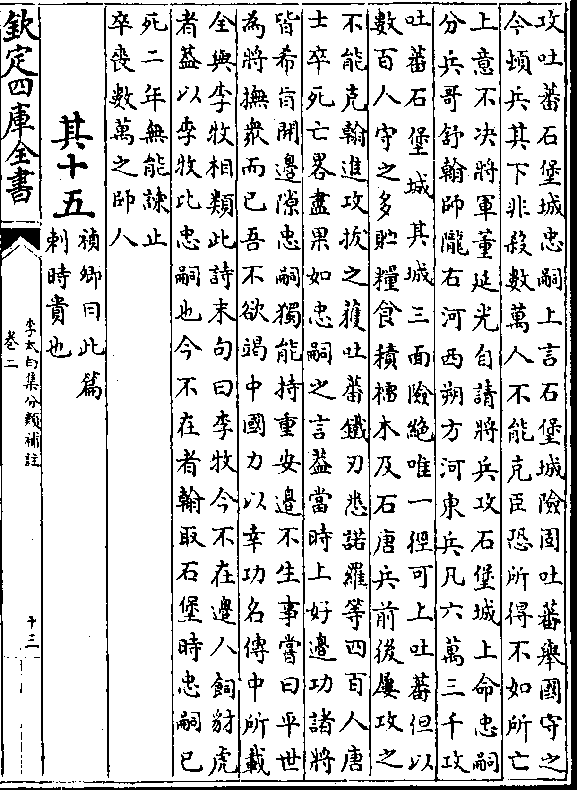 攻吐蕃石堡城忠嗣上言石堡城險固吐蕃舉國守之
今頓兵其下非殺數萬人不能克臣恐所得不如所亡
上意不決將軍董延光自請將兵攻石堡城上命忠嗣
分兵哥舒翰師隴右河西朔方河東兵凡六萬三千攻
吐蕃石堡城其城三面險絶唯一徑可上吐蕃但以
數百人守之多貯糧食積檑木及石唐兵前後屢攻之
不能克翰進攻拔之獲吐蕃鐵刃悉諾羅等四百人唐
士卒死亡畧盡果如忠嗣之言葢當時上好邊功諸將
皆希旨開邊隙忠嗣獨能持重安邊不生事嘗曰平世
為將撫衆而已吾不欲竭中國力以幸功名傳中所載
全與李牧相類此詩末句曰李牧今不在邊人飼豺虎
者葢以李牧比忠嗣也今不在者翰取石堡時忠嗣已
死二年無能諌止
卒喪數萬之師人
其十五
禎卿曰此篇
刺時貴也
欽定四庫全書
李太白集分類補註
卷二
十三